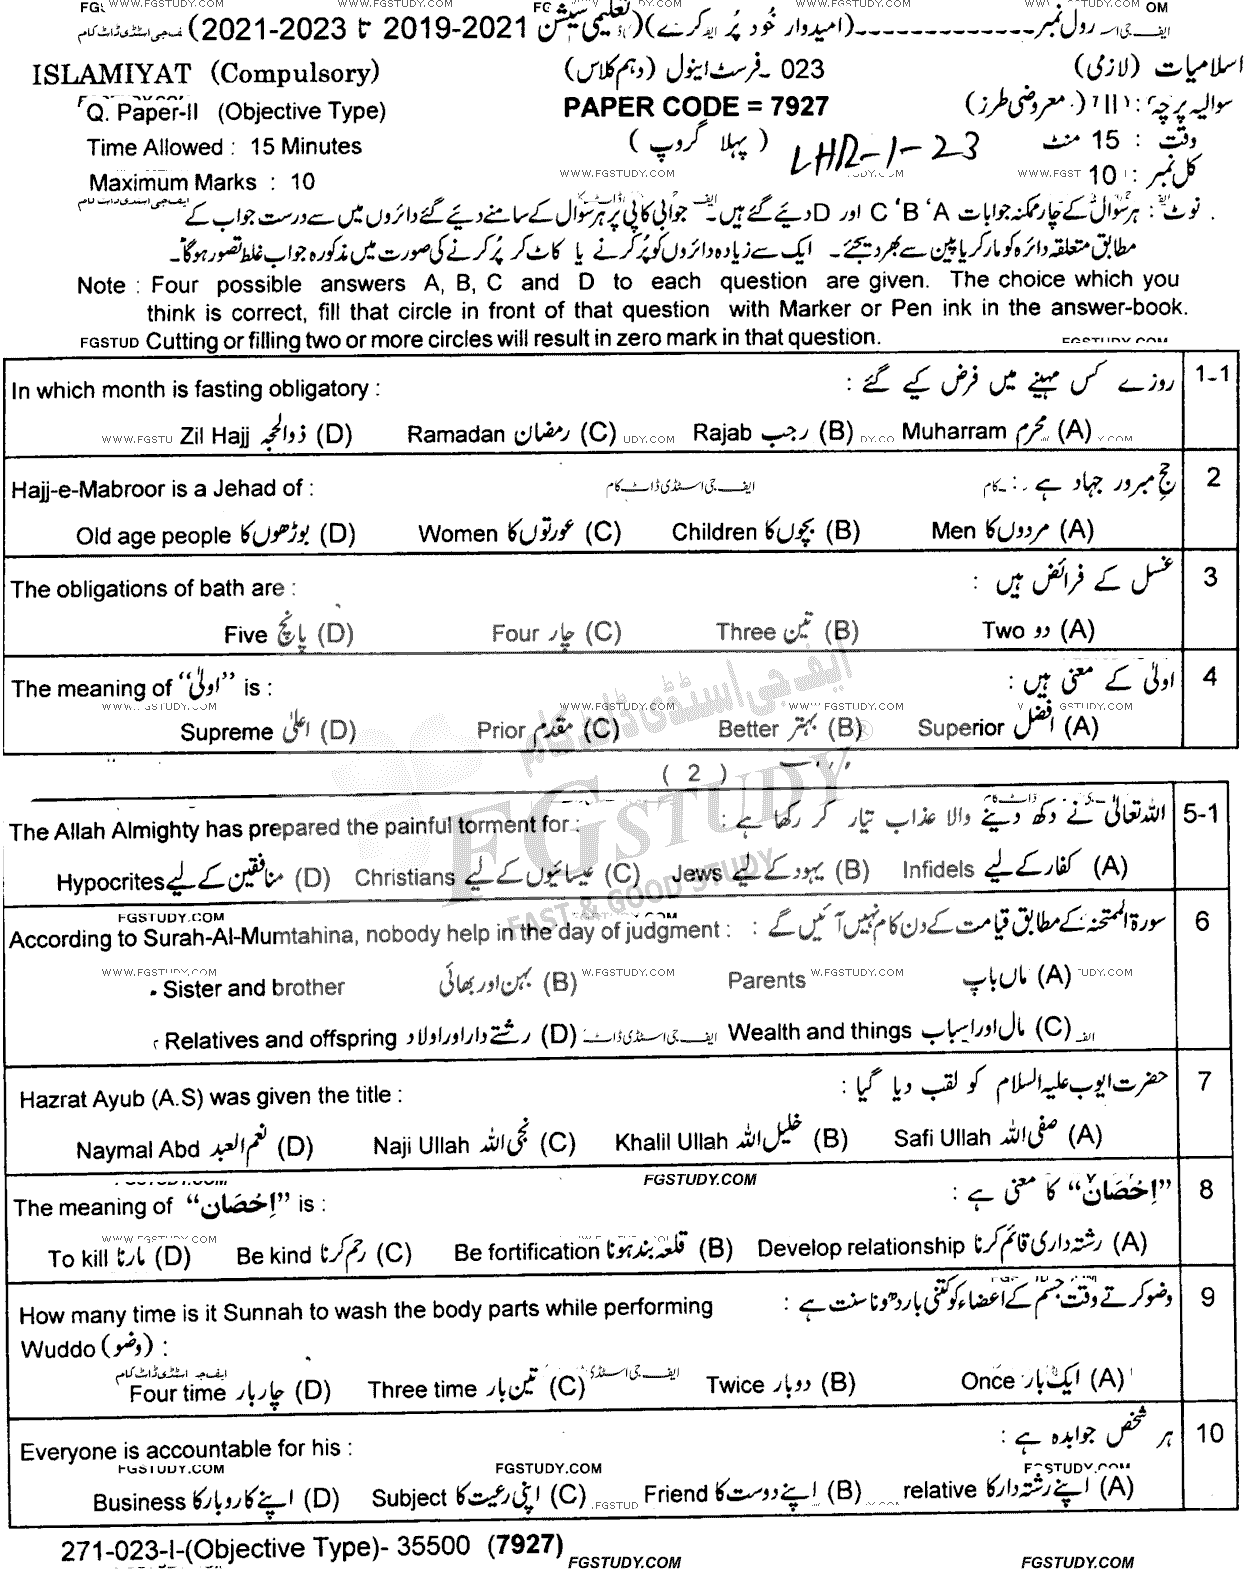 رول نمبر--------------(امیدوار خُود پُر کرے)(تعلیمی سیشن 2021-2019 تا 2023-2021)
ISLAMIYAT (Compulsory) 023 ۔فرسٹ اینول (دہم کلاس) اسلامیات (لازمی)
Q. Paper-II (Objective Type) PAPER CODE = 7927 سوالیہ پرچہ : II (معروضی طرز)
Time Allowed : 15 Minutes (پہلا گروپ) LHR-1-23 وقت : 15 منٹ
Maximum Marks : 10 WWW.FGSTUDY.COM کل نمبر : 10
نوٹ : ہر سوال کے چار ممکنہ جوابات A ' B ' C اور D دیئے گئے ہیں۔ جوابی کاپی پر ہر سوال کے سامنے دیئے گئے دائروں میں سے درست جواب کے
مطابق متعلقہ دائرہ کو مارکر یا پین سے بھر دیجئے۔ ایک سے زیادہ دائروں کو پُر کرنے یا کاٹ کر پُر کرنے کی صورت میں مذکورہ جواب غلط تصور ہوگا۔
Note : Four possible answers A, B, C and D to each question are given. The choice which you
think is correct, fill that circle in front of that question with Marker or Pen ink in the answer-book.
Cutting or filling two or more circles will result in zero mark in that question.
In which month is fasting obligatory : روزے کس مہینے میں فرض کیے گئے : 1-1
Zil Hajj ذوالحجہ (D) Ramadan رمضان (C) Rajab رجب (B) Muharram محرم (A)
Hajj-e-Mabroor is a Jehad of : ایف جی اسٹڈی ڈاٹ کام حجِ مبرور جہاد ہے : 2
Old age people بوڑھوں کا (D) Women عورتوں کا (C) Children بچوں کا (B) Men مردوں کا (A)
The obligations of bath are : غسل کے فرائض ہیں : 3
Five پانچ (D) Four چار (C) Three تین (B) Two دو (A)
The meaning of “اولیٰ” is : اولیٰ کے معنی ہیں : 4
WWW.FGSTUDY.COM
Supreme اعلیٰ (D) Prior مقدم (C) Better بہتر (B) Superior افضل (A)
ایف جی اسٹڈی ڈاٹ کام
( 2 )
FGSTUDY®
FAST & GOOD STUDY
The Allah Almighty has prepared the painful torment for : اللہ تعالیٰ نے دکھ دینے والا عذاب تیار کر رکھا ہے : 5-1
Hypocrites منافقین کے لیے (D) Christians عیسائیوں کے لیے (C) Jews یہود کے لیے (B) Infidels کفار کے لیے (A)
FGSTUDY.COM
According to Surah-Al-Mumtahina, nobody help in the day of judgment : سورۃ الممتحنہ کے مطابق قیامت کے دن کام نہیں آئیں گے : 6
Sister and brother بہن اور بھائی (B) Parents ماں باپ (A)
Relatives and offspring رشتے دار اور اولاد (D) Wealth and things مال اور اسباب (C)
Hazrat Ayub (A.S) was given the title : حضرت ایوب علیہ السلام کو لقب دیا گیا : 7
Naymal Abd نعم العبد (D) Naji Ullah نجی اللہ (C) Khalil Ullah خلیل اللہ (B) Safi Ullah صفی اللہ (A)
FGSTUDY.COM
The meaning of “اِحْصَان” is : “اِحْصَان” کا معنی ہے : 8
To kill مارنا (D) Be kind رحم کرنا (C) Be fortification قلعہ بند ہونا (B) Develop relationship رشتہ داری قائم کرنا (A)
How many time is it Sunnah to wash the body parts while performing وضو کرتے وقت جسم کے اعضاء کو کتنی بار دھونا سنت ہے : 9
Wuddo (وضو) :
Four time چار بار (D) Three time تین بار (C) Twice دو بار (B) Once ایک بار (A)
Everyone is accountable for his : ہر شخص جوابدہ ہے : 10
FGSTUDY.COM FGSTUDY.COM FGSTUDY.COM
Business اپنے کاروبار کا (D) Subject اپنی رعیت کا (C) Friend اپنے دوست کا (B) relative اپنے رشتہ دار کا (A)
271-023-I-(Objective Type)- 35500 (7927) FGSTUDY.COM FGSTUDY.COM